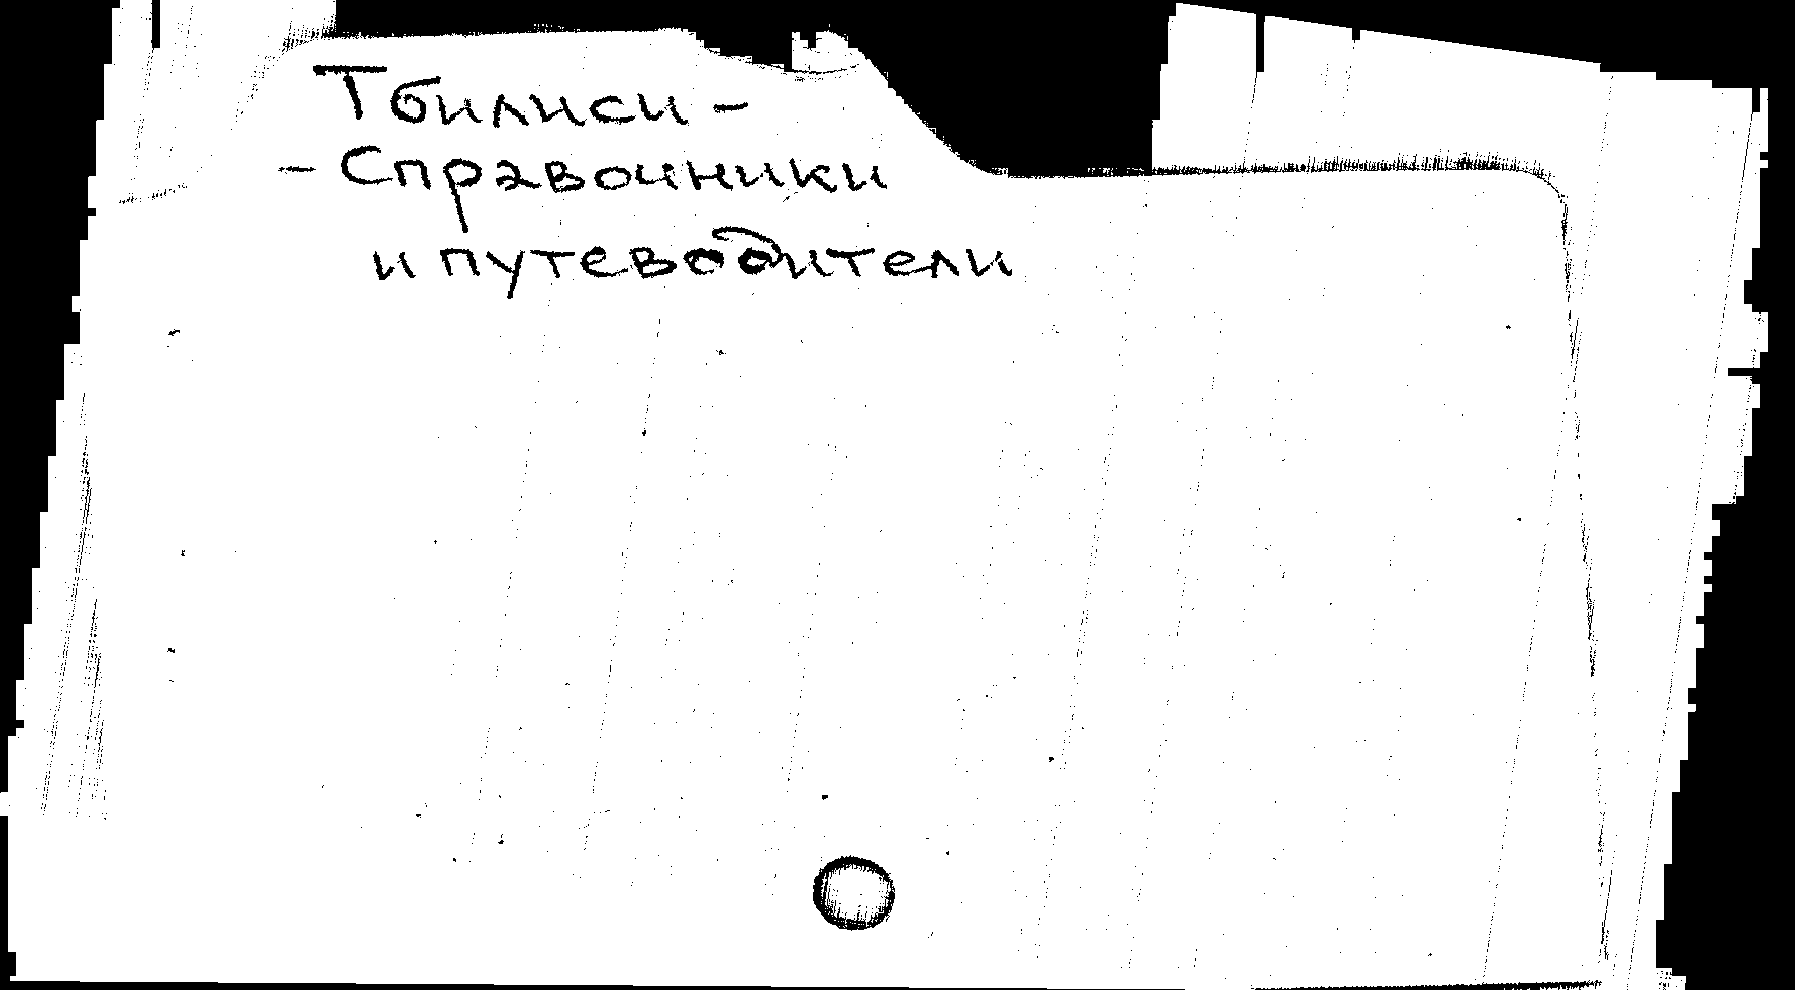 Тбилиси -
- Справочники
и путеводители